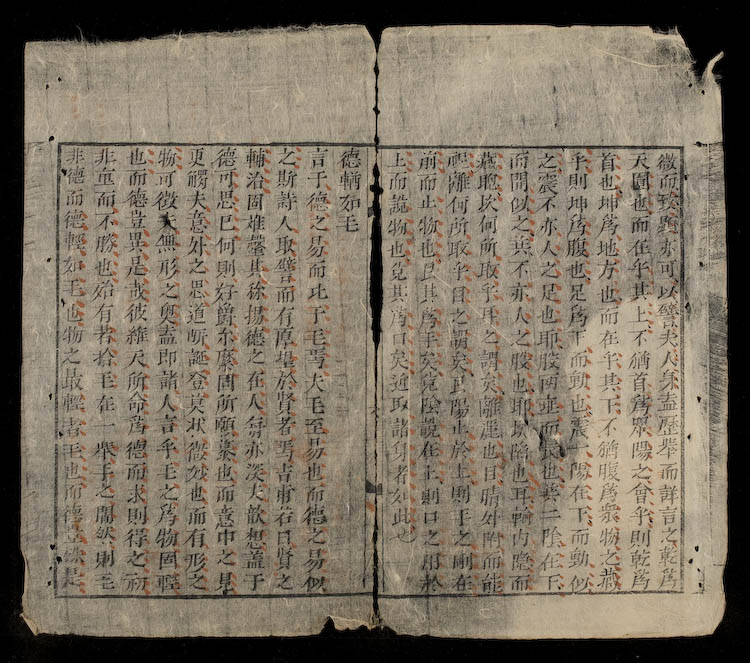 微而㸔歟亦可以譬夫人身盍歷舉而詳言之乾爲
天圓也而在乎其上不猶首爲眾陽之會乎則乾爲
首也坤爲地方也而在乎其下不猶腹爲衆物之藏
乎則坤爲腹也足爲下而動也震一陽在下而動似
之震不亦人之足也耶股兩垂而長也巽二陰在下
而開似之巽不亦人之股也耶坎陷也耳輪內陷而
能聰坎何所取乎耳之謂矣離麗也目睛外附而能
視離何所取乎目之謂矣艮陽止於上則手之剛在
前而止物也艮其爲手矣兌陰說在上則口之用於
上而說物也兌其爲口矣近取諸身者如此也
德輶如毛
言乎德之易而比于毛焉夫毛至易也而德之易似
之斯詩人取譬而有厚望於賢者焉吉甫若曰賢之
輔治固難罄其称揚德之在人曾亦深夫歆想蓋于
德可思已何則好爵示縻固所願慕也而意中之見
更觸夫意外之思道岸誕登莫狀微妙也而有形之
物可徵夫無形之奧盍即諸人言乎毛之爲物固輕
也而德豈異是哉彼維天所命爲德而求則得之初
非重而不勝也殆有若拾毛在一舉手之間然則毛
非德而德輕如毛也物之最輕者毛也而德豈殊是